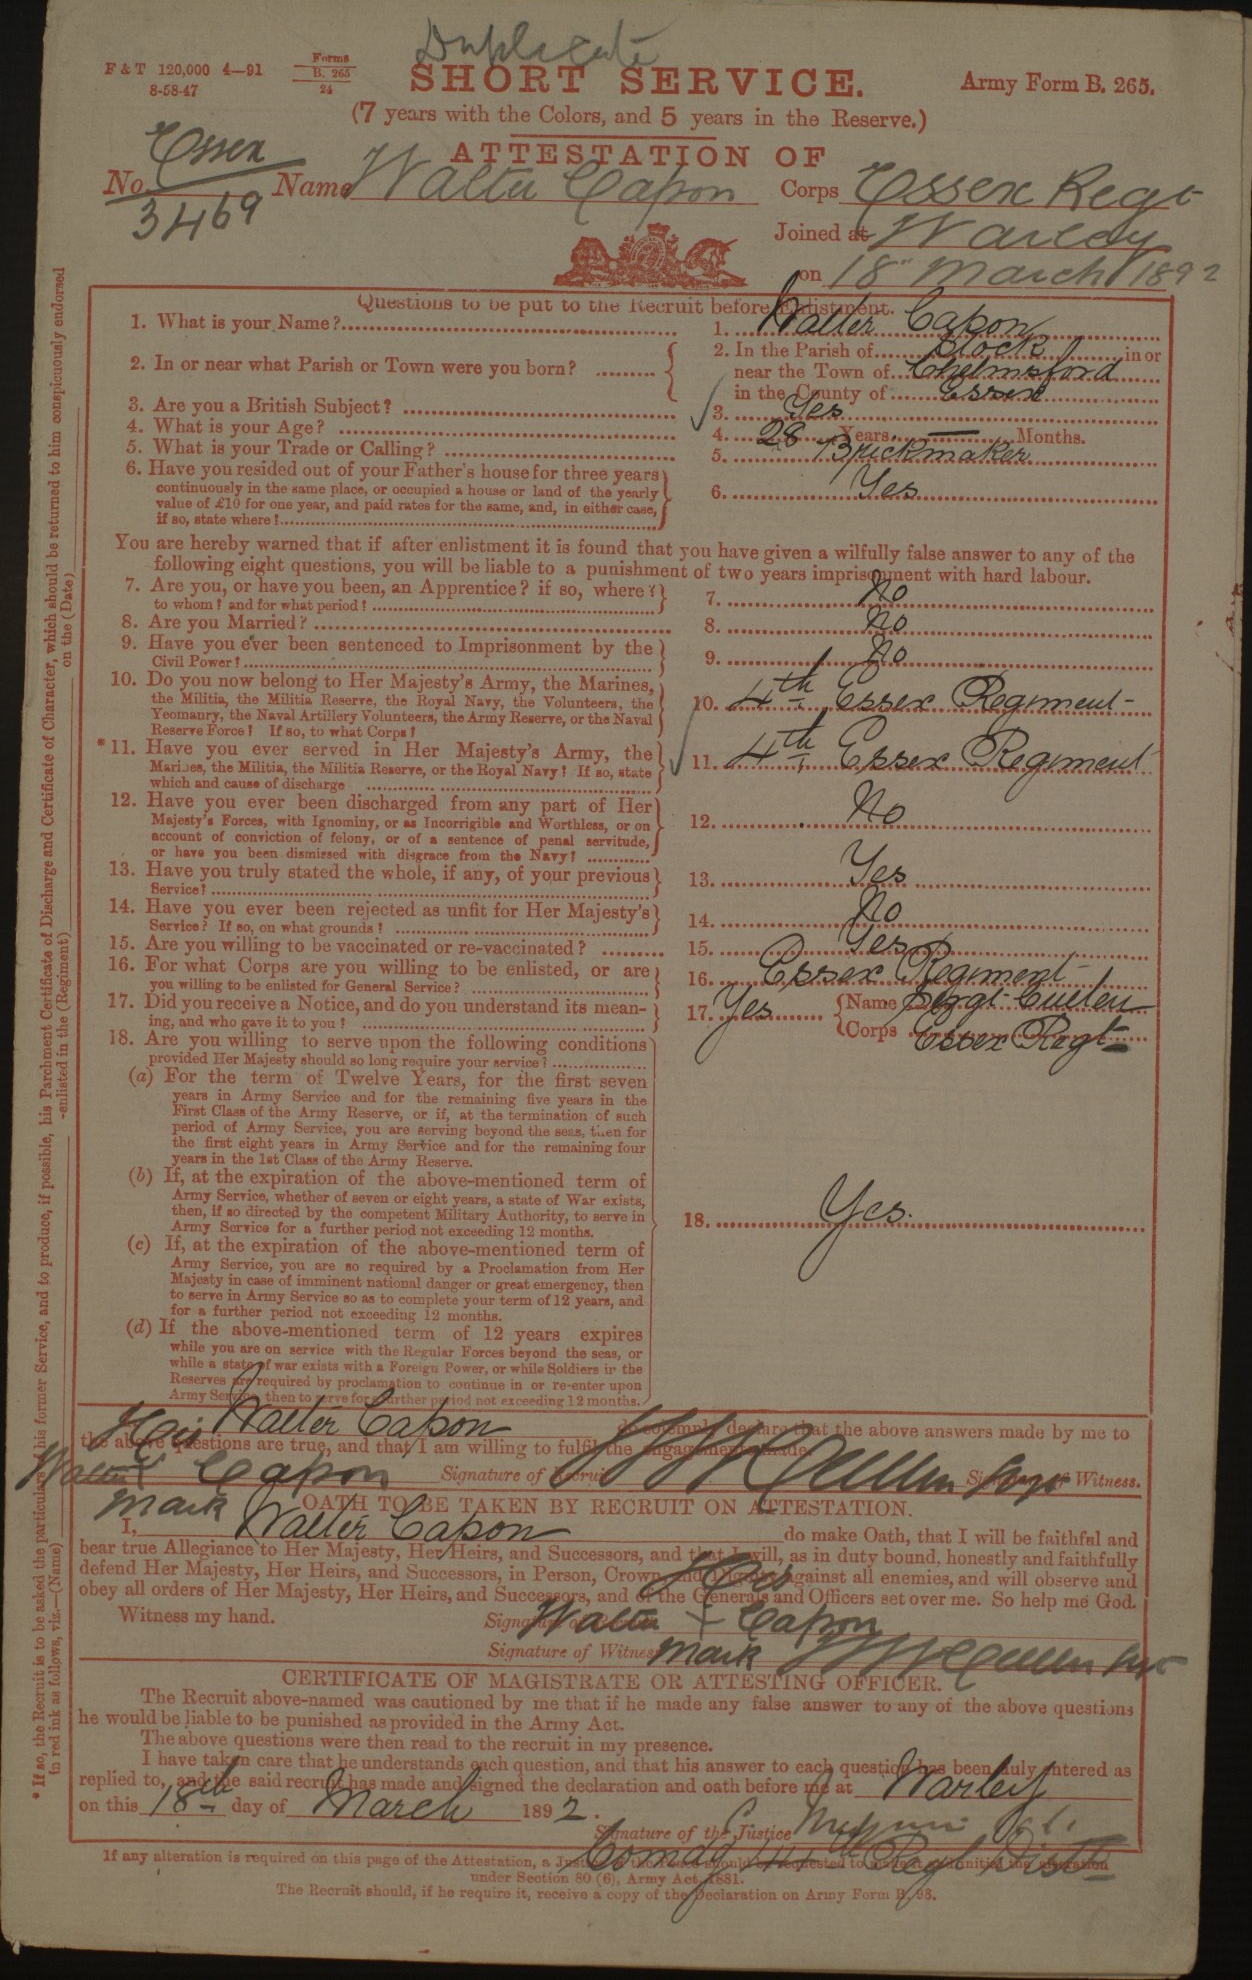 Duplicate
F & T 120,000 4—91
8-58-47
Forms
B. 265
24
SHORT SERVICE.
Army Form B. 265.
(7 years with the Colors, and 5 years in the Reserve.)
ATTESTATION OF
No. Essex 3469 Name Walter Capon Corps Essex Regt
Joined at Warley
on 18" March 1892
Questions to be put to the Recruit before Enlistment.
1. What is your Name? 1. Walter Capon
2. In or near what Parish or Town were you born? 2. In the Parish of Stock in or
near the Town of Chelmsford
in the County of Essex
3. Are you a British Subject? 3. Yes
4. What is your Age? 4. 28 Years — Months.
5. What is your Trade or Calling? 5. Brickmaker
6. Have you resided out of your Father's house for three years
continuously in the same place, or occupied a house or land of the yearly
value of £10 for one year, and paid rates for the same, and, in either case,
if so, state where? 6. Yes
You are hereby warned that if after enlistment it is found that you have given a wilfully false answer to any of the
following eight questions, you will be liable to a punishment of two years imprisonment with hard labour.
7. Are you, or have you been, an Apprentice? if so, where?
to whom? and for what period? 7. No
8. Are you Married? 8. No
9. Have you ever been sentenced to Imprisonment by the
Civil Power? 9. No
10. Do you now belong to Her Majesty's Army, the Marines,
the Militia, the Militia Reserve, the Royal Navy, the Volunteers, the
Yeomanry, the Naval Artillery Volunteers, the Army Reserve, or the Naval
Reserve Force? If so, to what Corps? 10. 4th Essex Regiment
*11. Have you ever served in Her Majesty's Army, the
Marines, the Militia, the Militia Reserve, or the Royal Navy? If so, state
which and cause of discharge 11. 4th Essex Regiment
12. Have you ever been discharged from any part of Her
Majesty's Forces, with Ignominy, or as Incorrigible and Worthless, or on
account of conviction of felony, or of a sentence of penal servitude,
or have you been dismissed with disgrace from the Navy? 12. No
13. Have you truly stated the whole, if any, of your previous
Service? 13. Yes
14. Have you ever been rejected as unfit for Her Majesty's
Service? If so, on what grounds? 14. No
15. Are you willing to be vaccinated or re-vaccinated? 15. Yes
16. For what Corps are you willing to be enlisted, or are
you willing to be enlisted for General Service? 16. Essex Regiment
17. Did you receive a Notice, and do you understand its mean-
ing, and who gave it to you? 17. Yes Name Sergt Cullen
Corps Essex Regt
18. Are you willing to serve upon the following conditions
provided Her Majesty should so long require your service?
(a) For the term of Twelve Years, for the first seven
years in Army Service and for the remaining five years in the
First Class of the Army Reserve, or if, at the termination of such
period of Army Service, you are serving beyond the seas, then for
the first eight years in Army Service and for the remaining four
years in the 1st Class of the Army Reserve.
(b) If, at the expiration of the above-mentioned term of
Army Service, whether of seven or eight years, a state of War exists,
then, if so directed by the competent Military Authority, to serve in
Army Service for a further period not exceeding 12 months.
18. Yes.
(c) If, at the expiration of the above-mentioned term of
Army Service, you are so required by a Proclamation from Her
Majesty in case of imminent national danger or great emergency, then
to serve in Army Service so as to complete your term of 12 years, and
for a further period not exceeding 12 months.
(d) If the above-mentioned term of 12 years expires
while you are on service with the Regular Forces beyond the seas, or
while a state of war exists with a Foreign Power, or while Soldiers in the
Reserves are required by proclamation to continue in or re-enter upon
Army Service, then to serve for a further period not exceeding 12 months.
I, Walter Capon do solemnly declare that the above answers made by me to
the above questions are true, and that I am willing to fulfil the engagements made.
His
Walter X Capon Signature of Recruit. Cullen Sergt Signature of Witness.
Mark
OATH TO BE TAKEN BY RECRUIT ON ATTESTATION.
I, Walter Capon do make Oath, that I will be faithful and
bear true Allegiance to Her Majesty, Her Heirs, and Successors, and that I will, as in duty bound, honestly and faithfully
defend Her Majesty, Her Heirs, and Successors, in Person, Crown, and Dignity against all enemies, and will observe and
obey all orders of Her Majesty, Her Heirs, and Successors, and of the Generals and Officers set over me. So help me God.
His
Witness my hand. Signature of Recruit Walter X Capon
Signature of Witness Mark Cullen Sergt
CERTIFICATE OF MAGISTRATE OR ATTESTING OFFICER.
The Recruit above-named was cautioned by me that if he made any false answer to any of the above questions
he would be liable to be punished as provided in the Army Act.
The above questions were then read to the recruit in my presence.
I have taken care that he understands each question, and that his answer to each question has been duly entered as
replied to, and the said recruit has made and signed the declaration and oath before me at Warley
on this 18th day of March 1892.
Signature of the Justice
Comdg 44th Regl Distt
If any alteration is required on this page of the Attestation, a Justice of the Peace should be requested to make it and initial the alteration
under Section 80 (6), Army Act, 1881.
The Recruit should, if he require it, receive a copy of the Declaration on Army Form B. 98.
* If so, the Recruit is to be asked the particulars of his former Service, and to produce, if possible, his Parchment Certificate of Discharge and Certificate of Character, which should be returned to him conspicuously endorsed
in red ink as follows, viz.—(Name) -enlisted in the (Regiment) on the (Date)